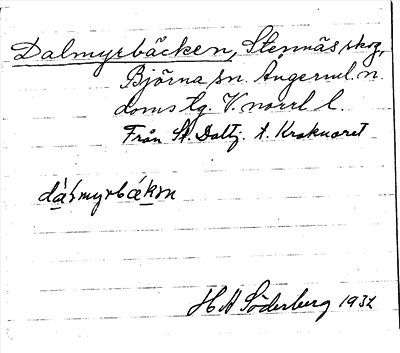 Dalmyrbäcken, Stennäs skog,
Björna sn. Ångerml. n.
doms lg. V. norrl l.
Från St. Daltj. t. Kroknoret
dàɫmyrbæ̀kɳ
H A Söderberg 1932